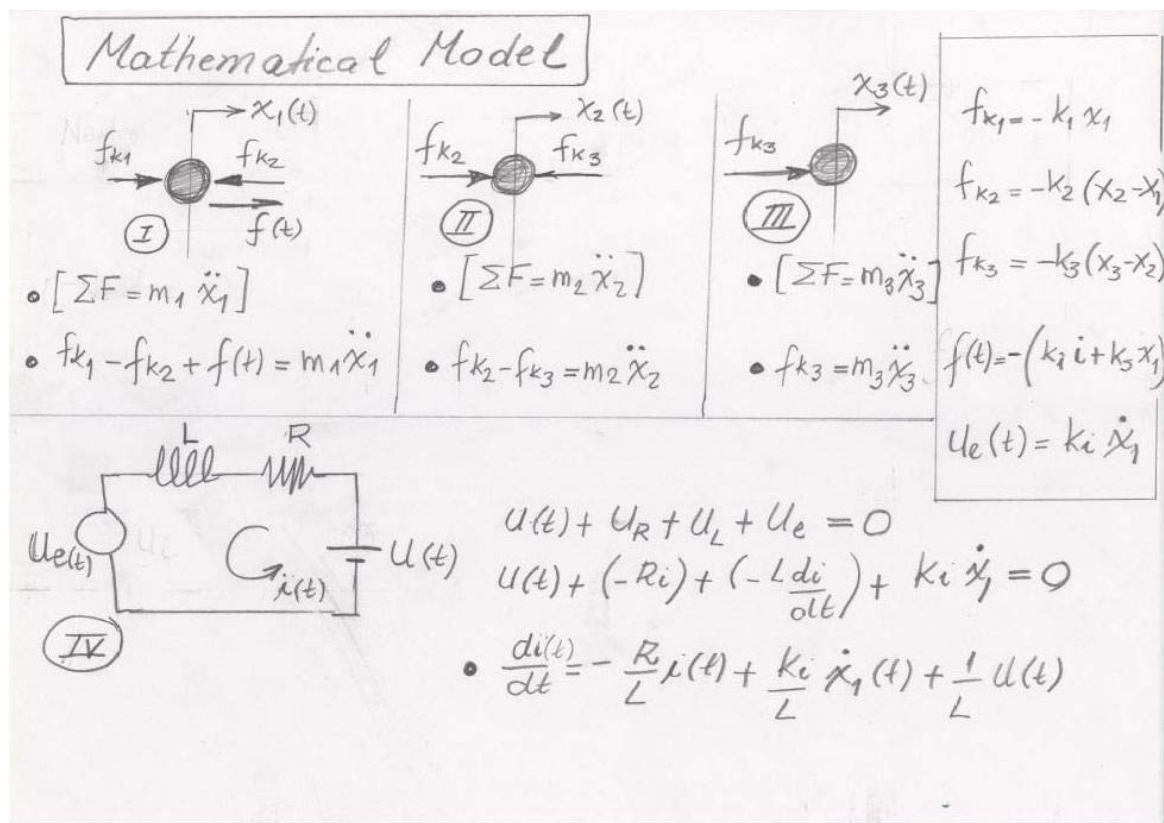 Mathematical Model
x₁(t)
fk₁
fk₂
f(t)
I
• [ΣF = m₁ẍ₁]
• fk₁ - fk₂ + f(t) = m₁ẍ₁
x₂(t)
fk₂
fk₃
II
• [ΣF = m₂ẍ₂]
• fk₂ - fk₃ = m₂ẍ₂
x₃(t)
fk₃
III
• [ΣF = m₃ẍ₃]
• fk₃ = m₃ẍ₃
fk₁ = - k₁ x₁
fk₂ = -k₂ (x₂-x₁)
fk₃ = -k₃(x₃-x₂)
f(t) = -(kᵢ i + kₛ x₁)
Ue(t) = ki ẋ₁
L
R
Ue(t)
i(t)
U(t)
IV
U(t) + U_R + U_L + Ue = 0
U(t) + (-Ri) + (-L di/dt) + ki ẋ₁ = 0
• di(t)/dt = - R/L i(t) + ki/L ẋ₁(t) + 1/L U(t)